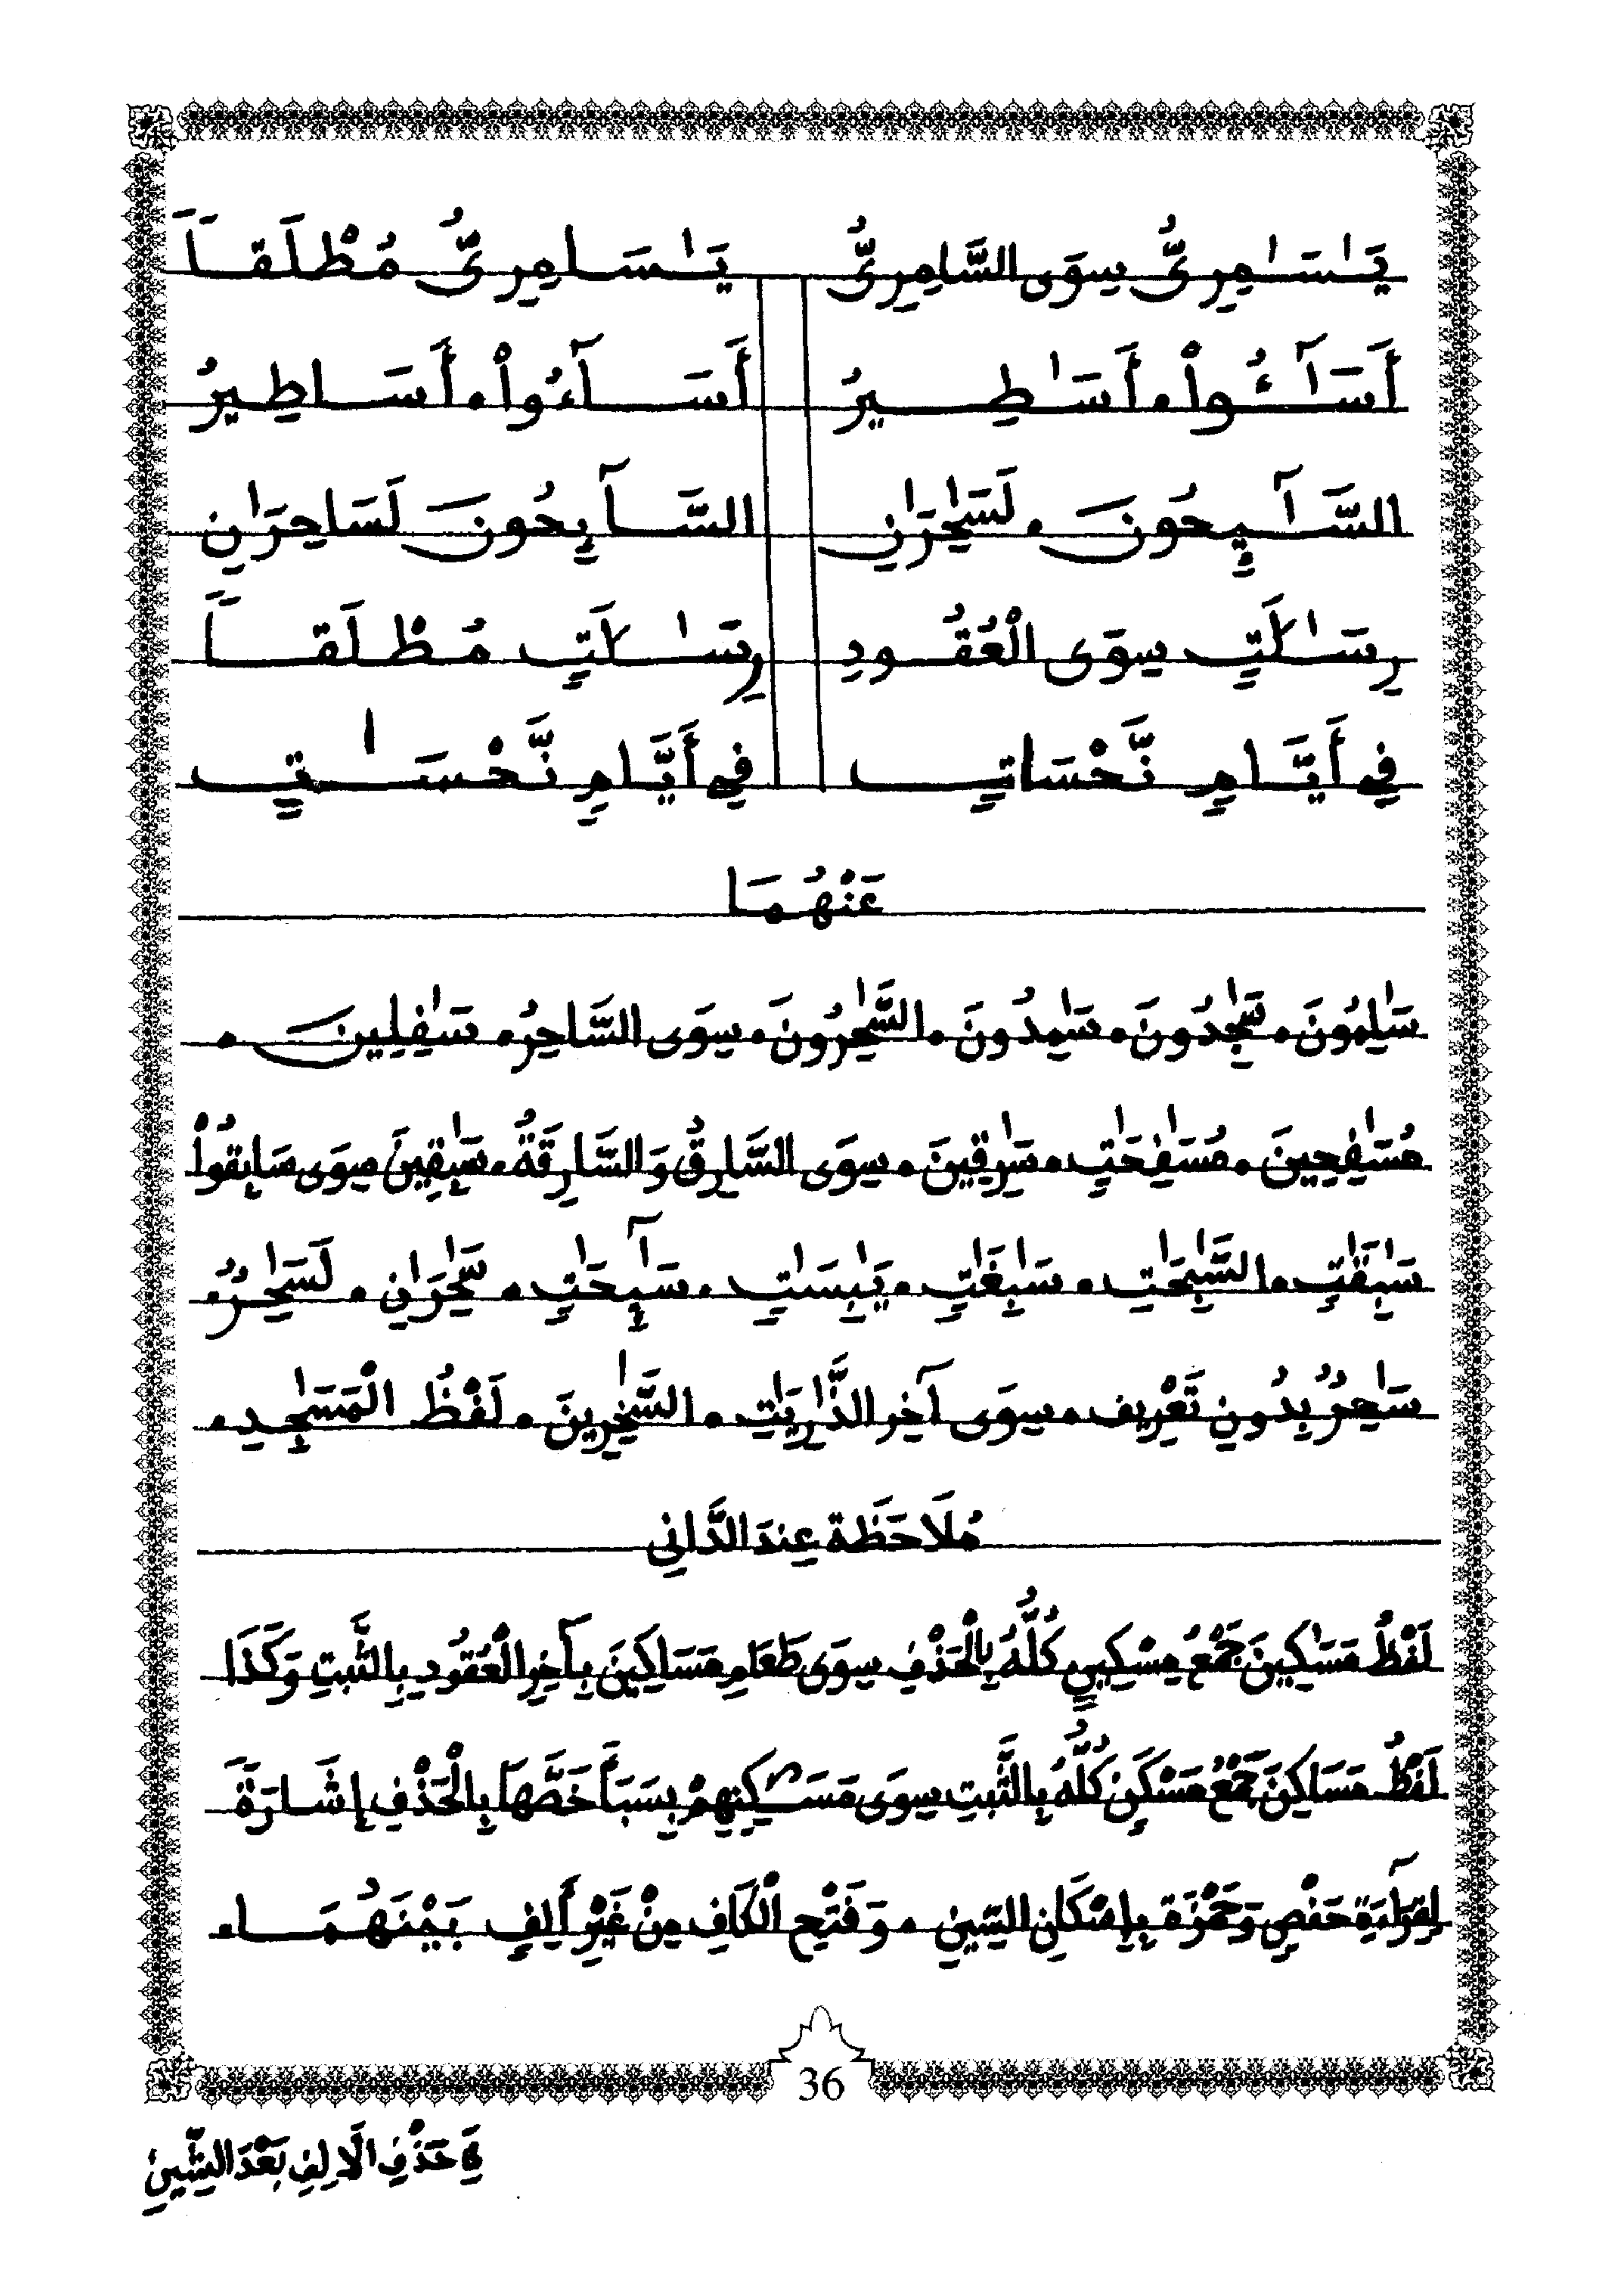 يَٰسَٰمِرِىُّ سِوَى السَّامِرِىُّ يَٰسَامِرِىُّ مُطْلَقاً
أَسَٰٓـُٔواْ، أَسَٰطِيرُ أَسَآءُواْ، أَسَاطِيرُ
السَّٰٓئِحُونَ، لَسَٰحِرَٰنِ السَّآئِحُونَ لَسَاحِرَٰنِ
رِسَٰلَٰتِ سِوَى الْعُقُودِ رِسَٰلَٰتِ مُطْلَقاً
فِي أَيَّامٍ نَّحْسَاتٍ فِي أَيَّامٍ نَّحْسَٰتٍ
عَنْهُمَا
سَٰلِمُونَ، سَٰجِدُونَ، سَٰمِدُونَ، السَّٰحِرُونَ، سِوَى السَّاحِرُ، سَٰفِلِينَ،
مُسَٰفِحِينَ، مُسَٰفِحَٰتٍ، سَٰرِقِينَ، سِوَى السَّارِقُ وَالسَّارِقَةُ، سَٰبِقِينَ سِوَى سَابِقُواْ
سَٰبِقَٰتٍ، السَّٰبِحَٰتِ، سَٰبِغَٰتٍ، يَابِسَٰتٍ، سَٰٓئِحَٰتٍ، سَٰحِرَٰنِ، لَسَٰحِرٌ،
سَٰحِرٌ بِدُونِ تَعْرِيف، سِوَى آخِر الذَّٰرِيَٰتِ، السَّٰخِرِينَ، لَفْظُ الْمَسَٰجِدِ،
مُلَاحَظَة عِندَ الدَّانِي
لَفْظُ مَسَٰكِينَ جَمْعُ مِسْكِينٍ كُلُّهُ بِالْحَذْفِ سِوَى طَعَامِ مَسَاكِينَ بِآخِرِ الْعُقُودِ بِالثَّبتِ وَكَذَا
لَفْظُ مَسَاكِنَ جَمْعُ مَسْكَنٍ كُلُّهُ بِالثَّبتِ سِوَى مَسَٰكِنِهِمْ بِسَبَأَ خَصَّهَا بِالْحَذْفِ إِشَارَةً
لِقِرَاءَةِ حَفْصٍ وَحَمْزَة بِإِسْكَانِ السِّينِ، وَفَتْحِ الْكَافِ مِنْ غَيْرِ أَلِفٍ بَيْنَهُمَا،
36
فِي حَذْفِ الْأَلِفِ بَعْدَ الشِّينِ